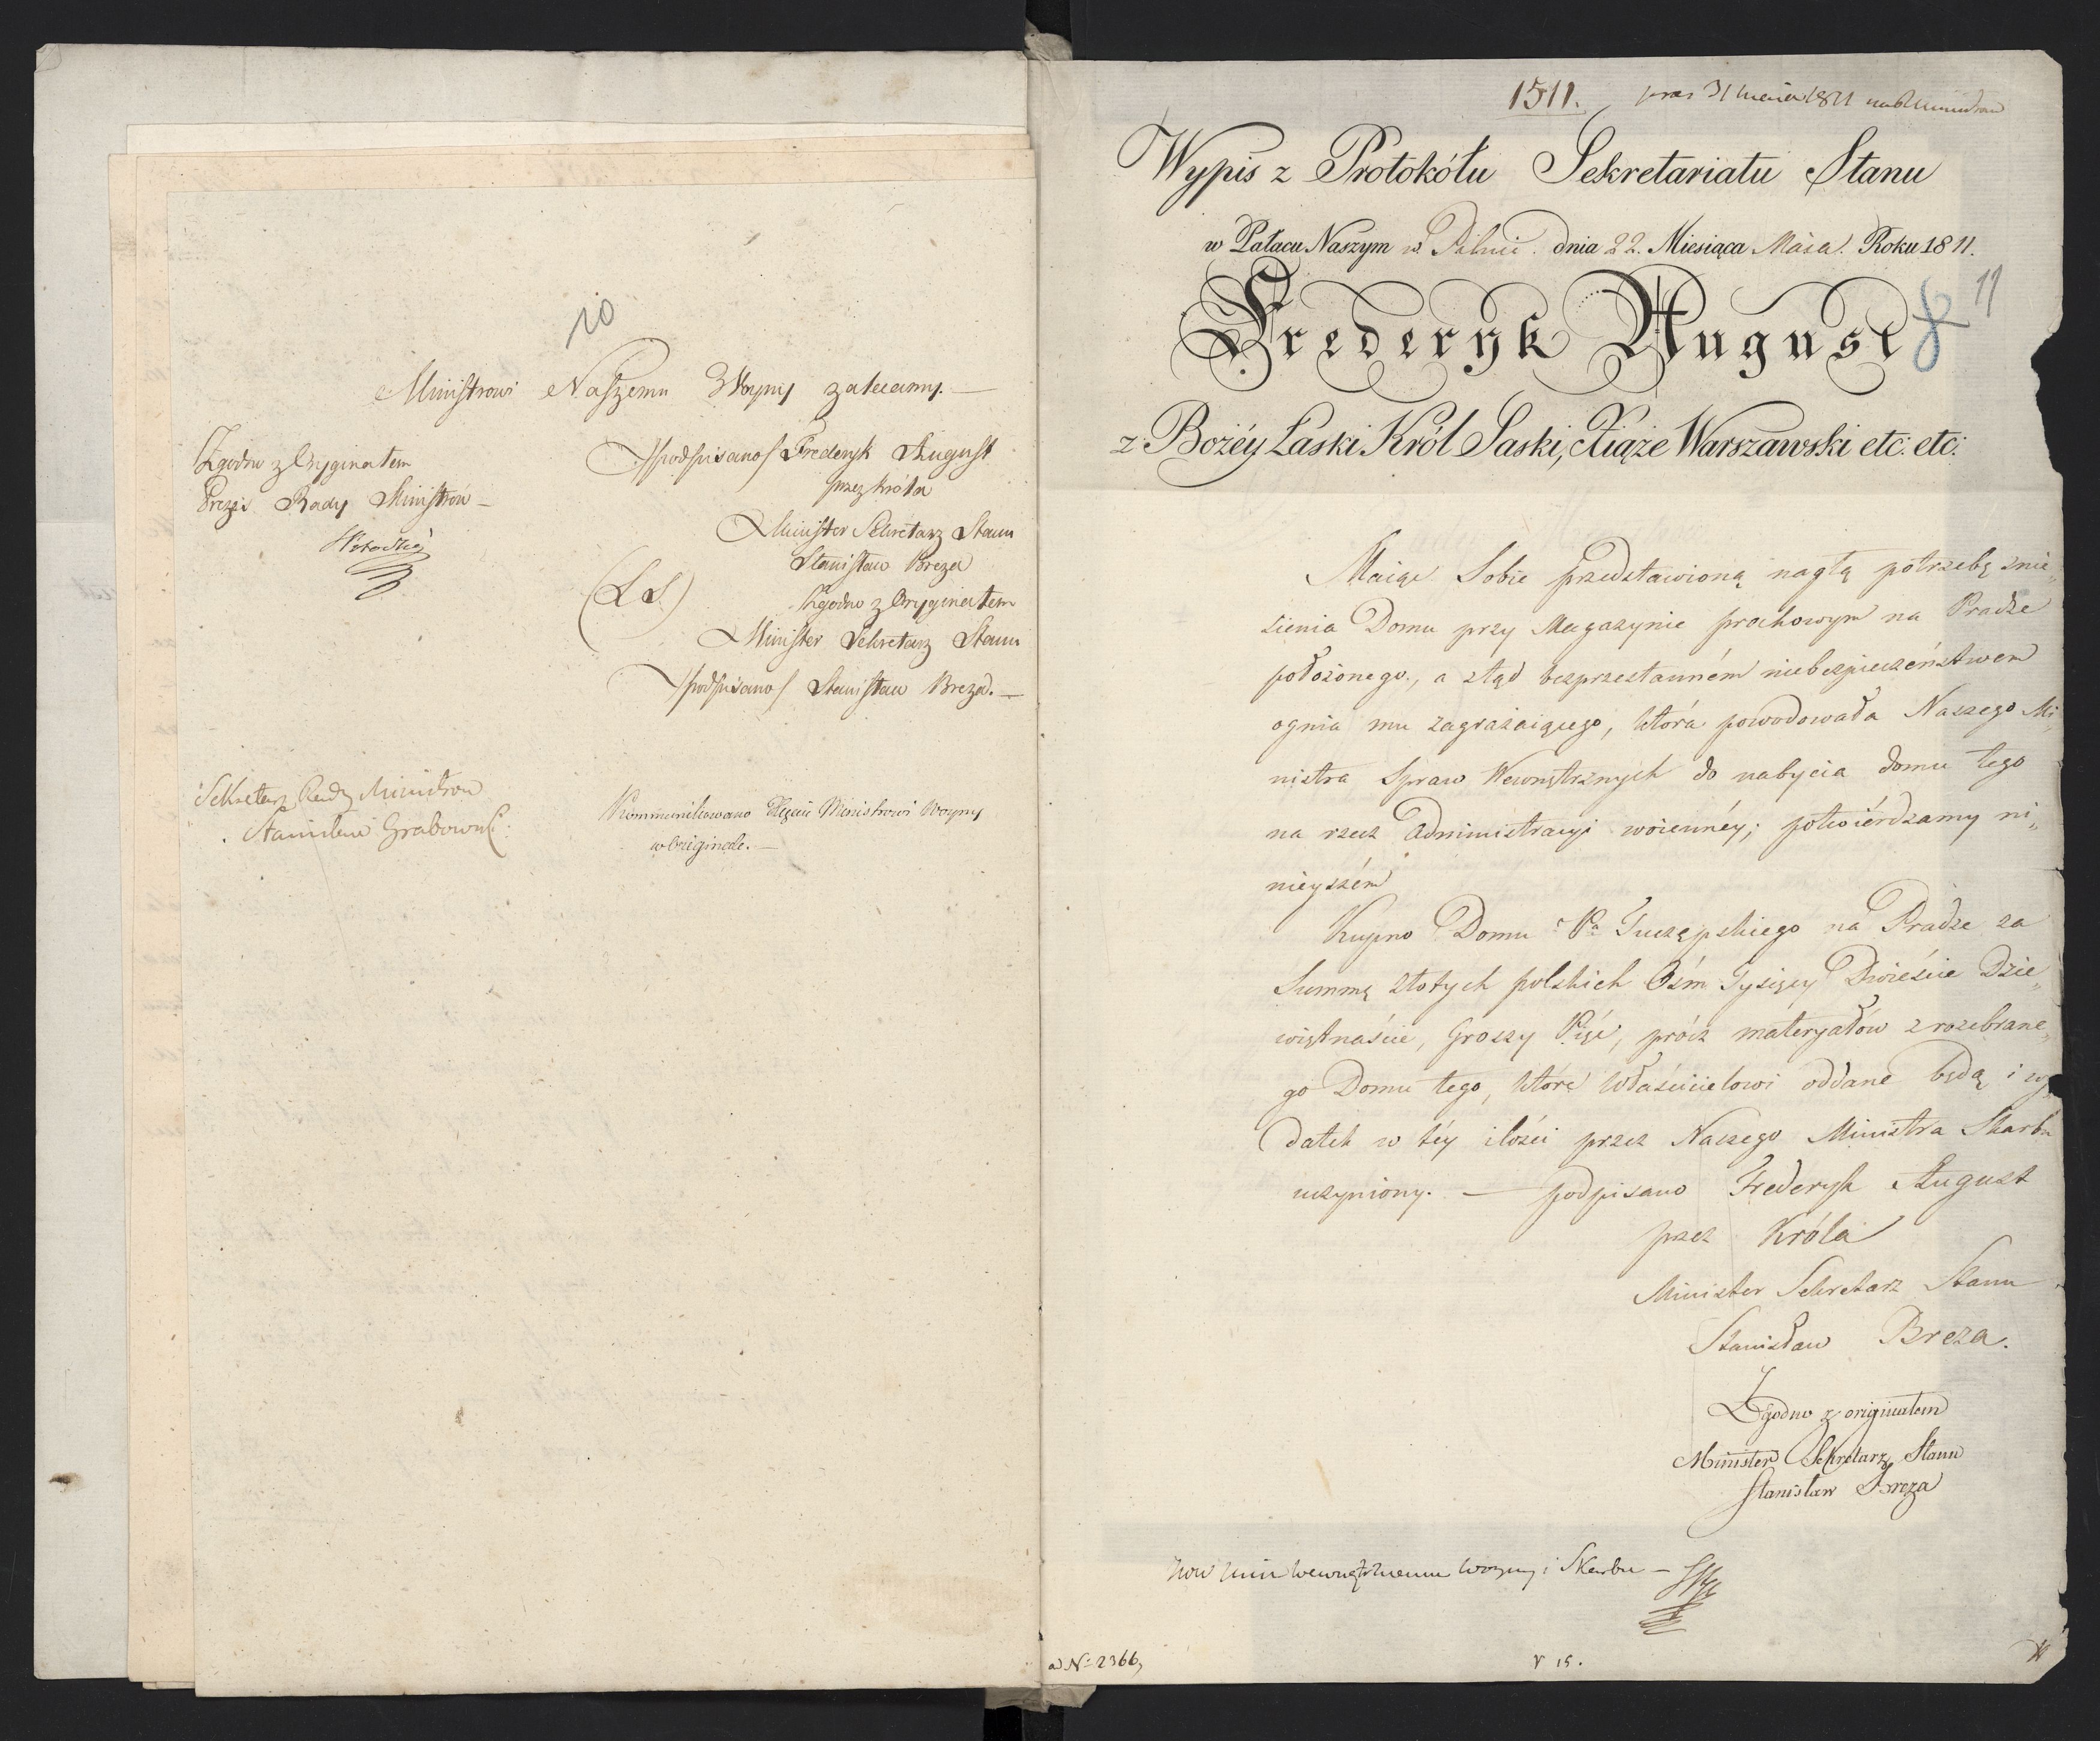 10
Ministrowi Naszemu Woyny zalecamy. —
Zgodno z Oryginałem
Prezes Rady Ministrów —
/podpisano/ Frederyk August
przez Króla
Minister Sekretarz Stanu
Stanisław Breza
(L S)
Zgodno z Oryginałem
Minister Sekretarz Stanu
/podpisano/ Stanisław Breza. —
Sekretarz Rady Ministrow
Stanisław Grabowski
Kommunikowano Xięciu Ministrowi Woyny
w Originale. —
1511. 31 1811
Wypis z Protokółu Sekretariatu Stanu
w Pałacu Naszym w Pilnic. dnia 22. Miesiąca Maia. Roku 1811.
11
Frederyk August
8
z Bożéy Łaski Król Saski, Xiąże Warszawski etc: etc:
Maiąc Sobie przedstawioną nagłą potrzebę znie„
sienia Domu przy Magazynie prochowym na Pradze
położonego, a ztąd bezprzestanném niebezpieczeństwem
ognia mu zagrażaiącego, która powodowała Naszego Mi„
nistra Spraw Wewnętrznych do nabycia domu tego
na rzecz Administracyi woiennéy; potwiérdzamy ni„
nieyszém
Kupno Domu Pa Tuczępskiego na Pradze za
Summę złotych polskich Ośm Tysięcy Dwieście Dzie„
więtnaście, Groszy Pięć, prócz materyałów z rozebrane„
go Domu tego, które Właścicielowi oddane będą i wy„
datek w téy ilości przez Naszego Ministra Skarbu
uczyniony. — podpisano Frederyk August
przez Króla
Minister Sekretarz Stanu
Stanisław Breza.
Zgodno z originałem
Minister Sekretarz Stanu
Stanisław Breza
Woyny i Skarbu —
ad No 2366,
v 15.